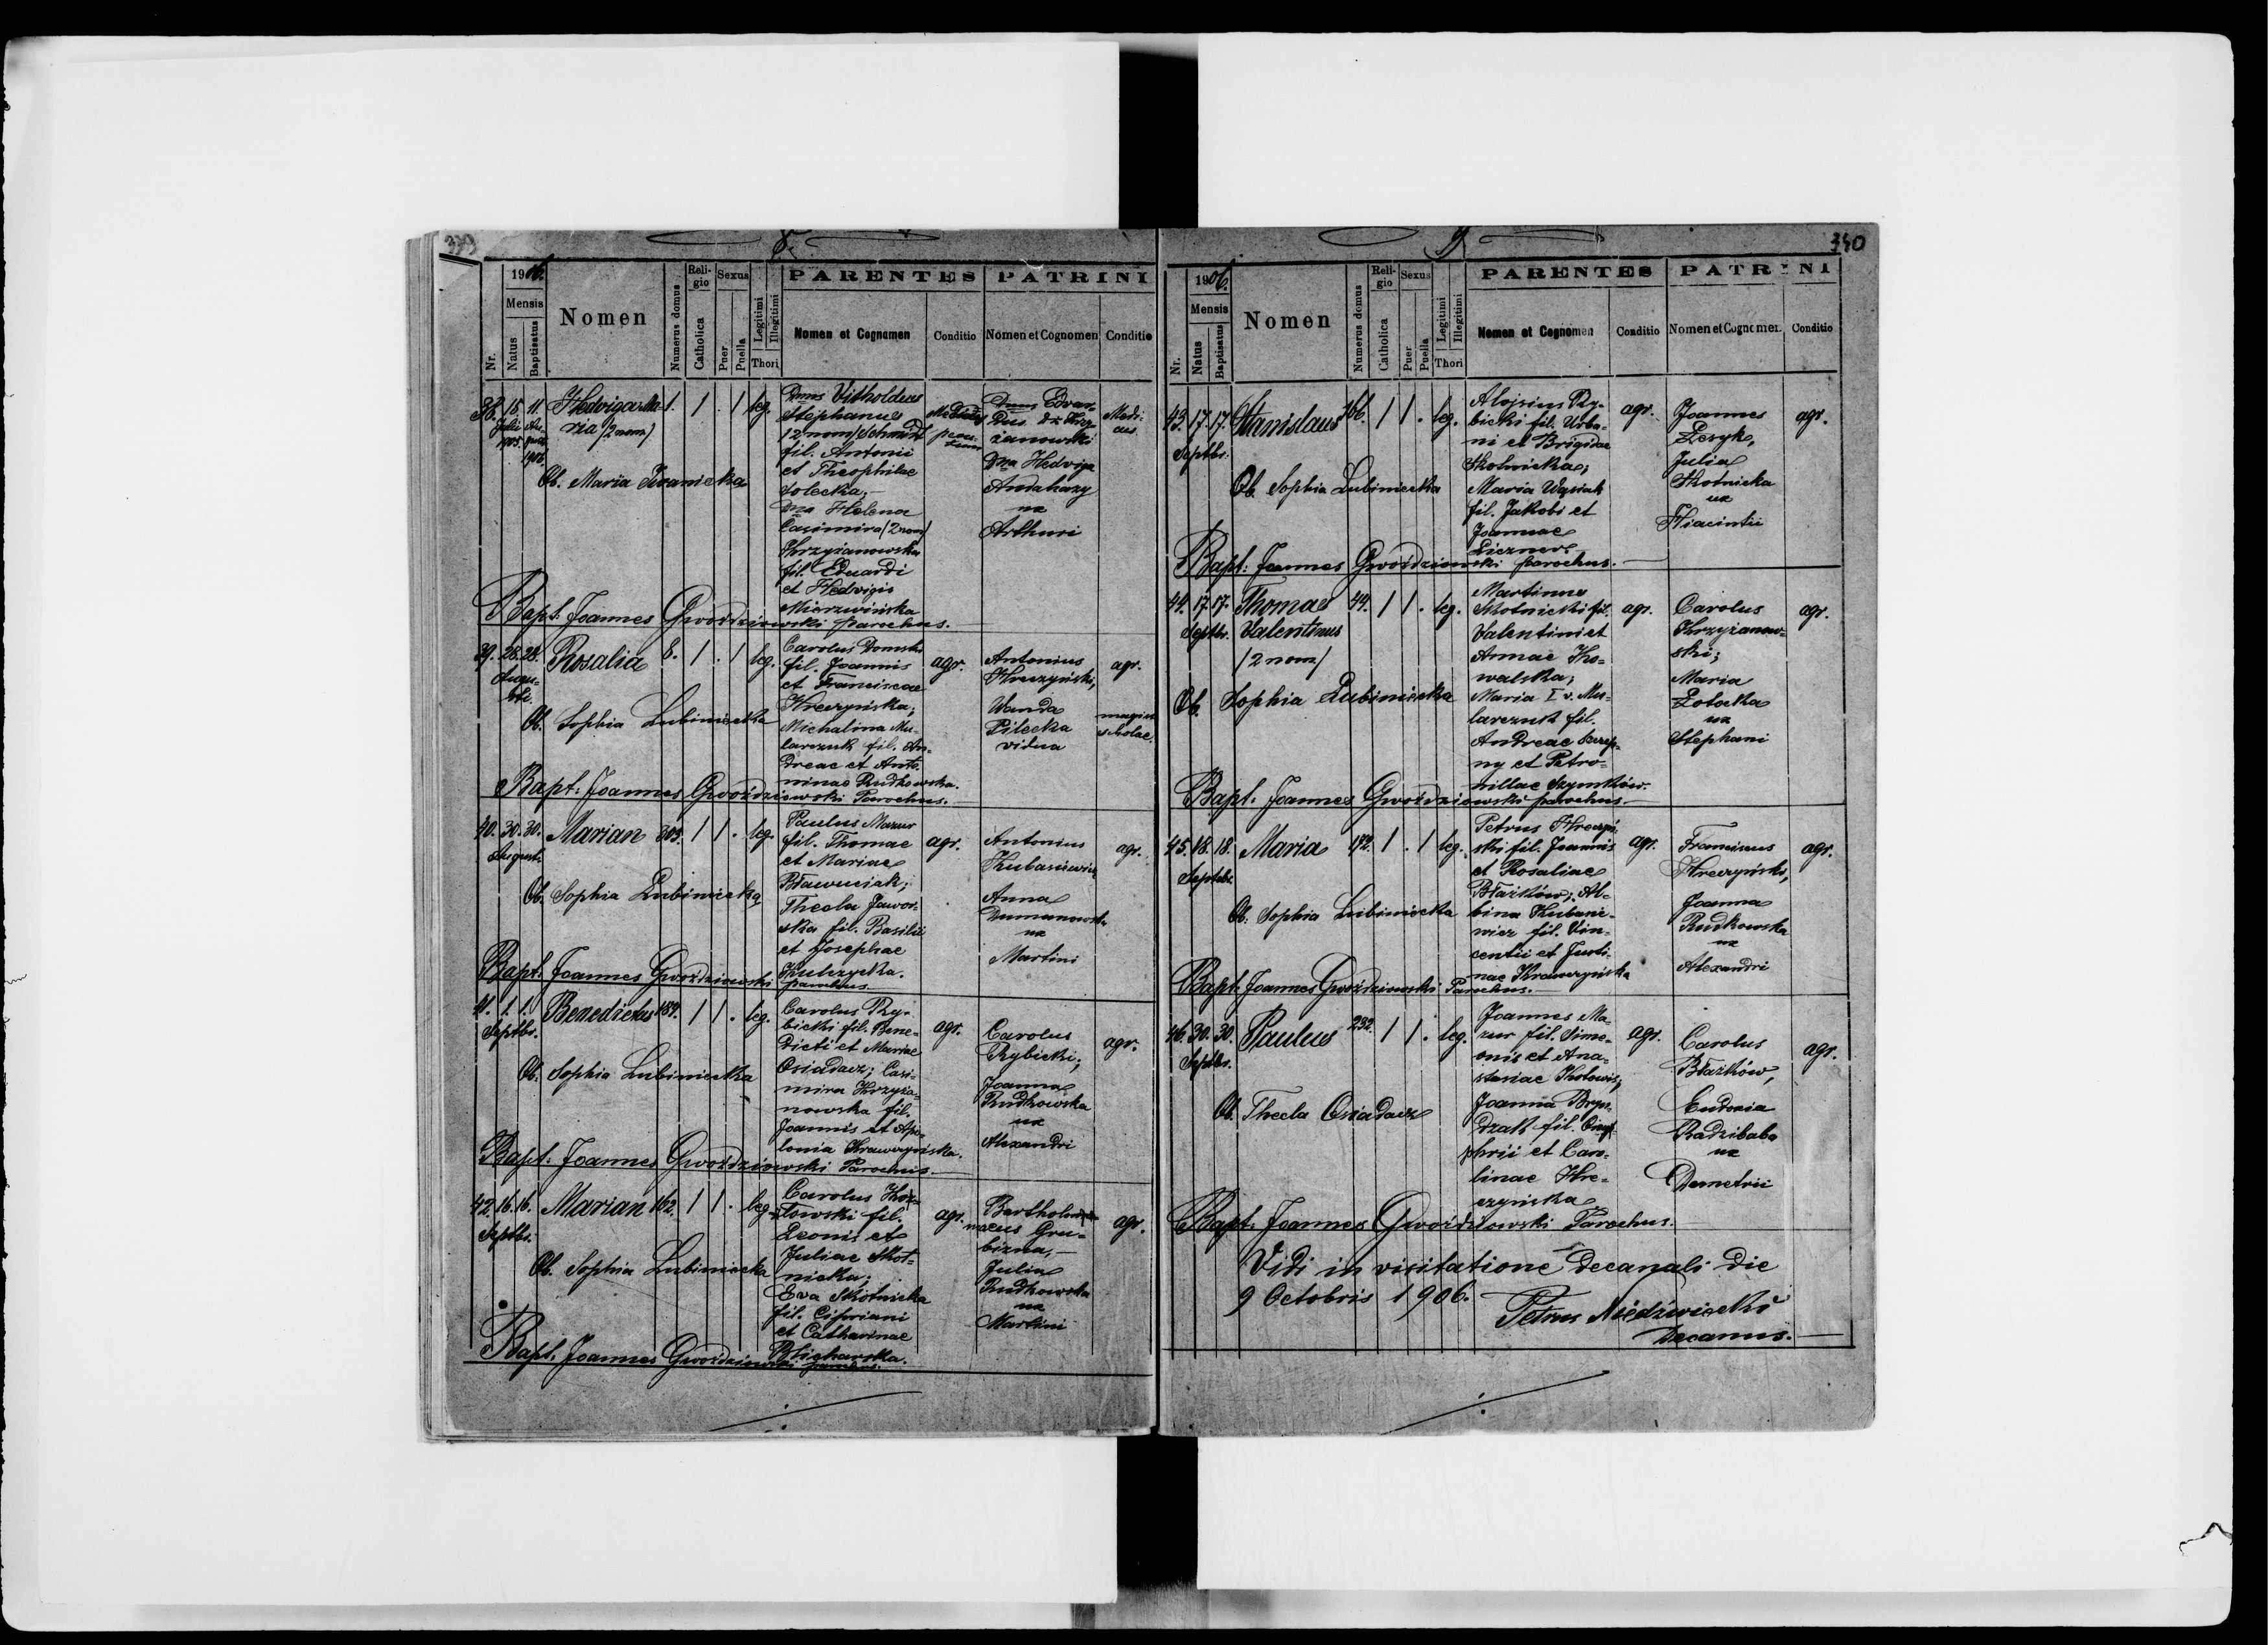 8.
1906.
Mensis
Nr.
Natus
Baptisatus
Nomen
Numerus domus
Reli-
gio
Catholica
Sexus
Puer
Puella
Legitimi
Illegitimi
Thori
PARENTES
Nomen et Cognomen
Conditio
PATRINI
Nomen et Cognomen
Conditio
38. 15. 11. Hedviga Ma- 1. 1 . 1 leg.
ria (2 nom)
Julii
1905.
1906.
Ob. Maria Iwanicka
Dnus Vitholdus
Stephanus
(2 nom) Schmidt
fil. Antonii
et Theophilae
Solecka;
Dna Helena
Casimira (2 nom)
Krzyżanowska
fil. Eduardi
et Hedvigis
Mierzwińska
Medicus
Dnus Edvar-
dus Dr Krzy-
żanowski
Dna Hedviga
Andahazy
ux
Arthuri
Medi-
cus
Bapt. Joannes Gwoździowski parochus.
39. 28. 28. Rosalia 8. 1 . 1 leg.
Augu-
sti.
Ob. Sophia Lubiniecka
Carolus Domski
fil. Joannis
et Franciscae
Kreczyńska;
Michalina Mu-
larczuk fil. An-
dreae et Anto-
ninae Rudkowska.
agr.
Antonius
Kreczyński,
Wanda
Pilecka
vidua
agr.
scholae.
Bapt. Joannes Gwoździowski Parochus.
40. 30. 30. Marian 303. 1 1 . leg.
August.
Ob. Sophia Lubiniecka
Paulus Mazur
fil. Thomae
et Mariae
Bławuciak;
Thecla Jawor-
ska fil. Basilii
et Josephae
Kulczycka.
agr.
Antonius
Kubasiewicz
Anna
Dumanowska
ux
Martini
agr.
Bapt. Joannes Gwoździowski parochus.
41. 1. 1. Benedictus 189. 1 1 . leg.
Septbr.
Ob. Sophia Lubiniecka
Carolus Ry-
bicki fil. Bene-
dicti et Mariae
Osiadacz; Casi-
mira Krzyża-
nowska fil.
Joannis et Apo-
lonia Krawczyńska.
agr.
Carolus
Rybicki;
Joanna
Rudkowska
ux
Alexandri
agr.
Bapt. Joannes Gwoździowski Parochus.
42. 16. 16. Marian 162. 1 1 . leg.
Septbr.
Ob. Sophia Lubiniecka
Carolus Koz-
łowski fil.
Leonis et
Juliae Skot-
nicka;
Eva Skotnicka
fil. Cipriani
et Catharinae
Blicharska.
agr.
Bartholo-
maeus Gru-
bizna,
Julia
Rudkowska
ux
Martini
agr.
Bapt. Joannes Gwoździowski parochus.
9.
340
1906.
Mensis
Nr.
Natus
Baptisatus
Nomen
Numerus domus
Reli-
gio
Catholica
Sexus
Puer
Puella
Legitimi
Illegitimi
Thori
PARENTES
Nomen et Cognomen
Conditio
PATRINI
Nomen et Cognomen
Conditio
43. 17. 17. Stanislaus 166. 1 1 . leg.
Septbr.
Ob. Sophia Lubiniecka
Aloisius Ry-
bicki fil. Urba-
ni et Brigidae
Skotnicka;
Maria Wąsiak
fil. Jakobi et
Joannae
Liczner.
agr.
Joannes
Lesyk,
Julia
Skotnicka
ux
Hiacintii
agr.
Bapt: Joannes Gwoździowski parochus.
44. 17. 17. Thomas 44. 1 1 . leg.
Septbr. Valentinus
(2 nom)
Ob. Sophia Lubiniecka
Martinus
Skotnicki fil.
Valentini et
Annae Ko-
walska;
Maria I v. Mu-
larczuk fil.
Andreae
ny et Petro-
nillae Szymków.
agr.
Carolus
Krzyżanow-
ski;
Maria
Łotocka
ux
Stephani
agr.
Bapt. Joannes Gwoździowski parochus.
45. 18. 18. Maria 172. 1 . 1 leg.
Septbr.
Ob. Sophia Lubiniecka
Petrus Kreczyń-
ski fil. Joannis
et Rosaliae
Błażków; Al-
bina Kubasie-
wicz fil. Vin-
centii et Justi-
nae Krawczyńska
agr.
Franciscus
Kreczyński,
Joanna
Rudkowska
ux
Alexandri
agr.
Bapt. Joannes Gwoździowski Parochus.
46. 30. 30. Paulus 232. 1 1 . leg.
Septbr.
Ob. Thecla Osiadacz
Joannes Ma-
zur fil. Sime-
onis et Ana-
stasiae Kotowis;
Joanna Bryn-
dzak fil. Onu-
phrii et Caro-
linae Kre-
czyńska
agr.
Carolus
Błażków,
Eudoxia
Radzibaba
ux
Demetrii
agr.
Bapt. Joannes Gwoździowski Parochus.
Vidi in visitatione decanali die
9 Octobris 1906.
Petrus Niedźwiecki
Decanus.